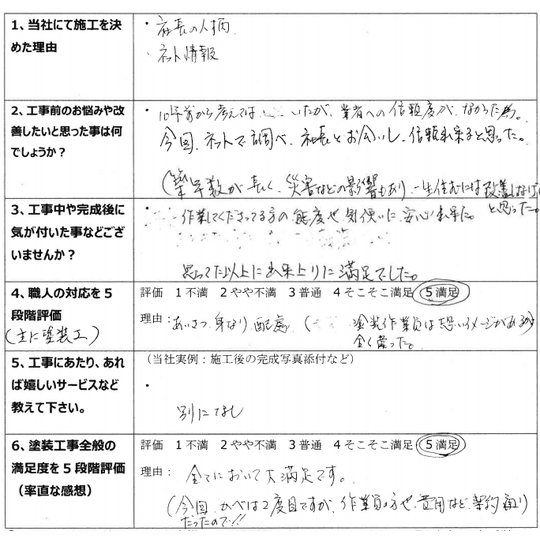 1、当社にて施工を決
めた理由
・社長の人柄
・ネット情報
2、工事前のお悩みや改
善したいと思った事は何
でしょうか？
・10年前から考えては いたが、業者への信頼度が、なかった為。
今回、ネットで調べ、社長とお会いし、信頼出来ると思った。
(築年数が長く、災害などの影響もあり、一生住むには改善しなければ
と思った。
3、工事中や完成後に
気が付いた事などござ
いませんか？
・作業してくださってる方の態度や気使いに安心出来た。
思ってた以上に出来上りに満足でした。
4、職人の対応を５
段階評価
(主に塗装工)
評価 1不満 2やや不満 3普通 4そこそこ満足 5満足
理由：あいさつ、身なり、配慮 ( 塗装作業員は恐いイメージがあるが
全く違った。
5、工事にあたり、あれ
ば嬉しいサービスなど
教えて下さい。
(当社実例：施工後の完成写真添付など)
・
別になし
6、塗装工事全般の
満足度を５段階評価
（率直な感想）
評価 1不満 2やや不満 3普通 4そこそこ満足 5満足
理由：全てにおいて大満足です。
(今回、かべは2度目ですが、作業員の方や、費用など、契約通り
だったので!!